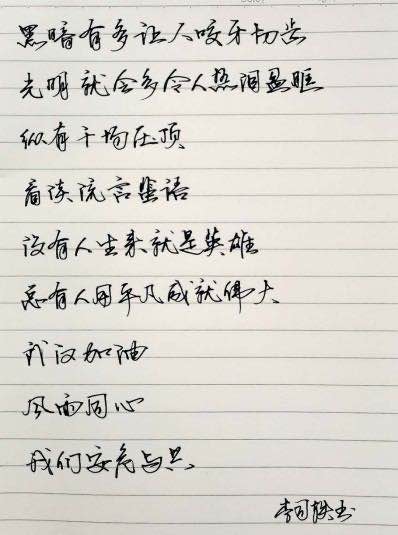 黑暗有多让人咬牙切齿
光明就会多令人热泪盈眶
纵有千压顶
看淡流言蜚语
没有人生来就是英雄
总有人用平凡成就伟大
武汉加油
风雨同心
我们安危与共
李书